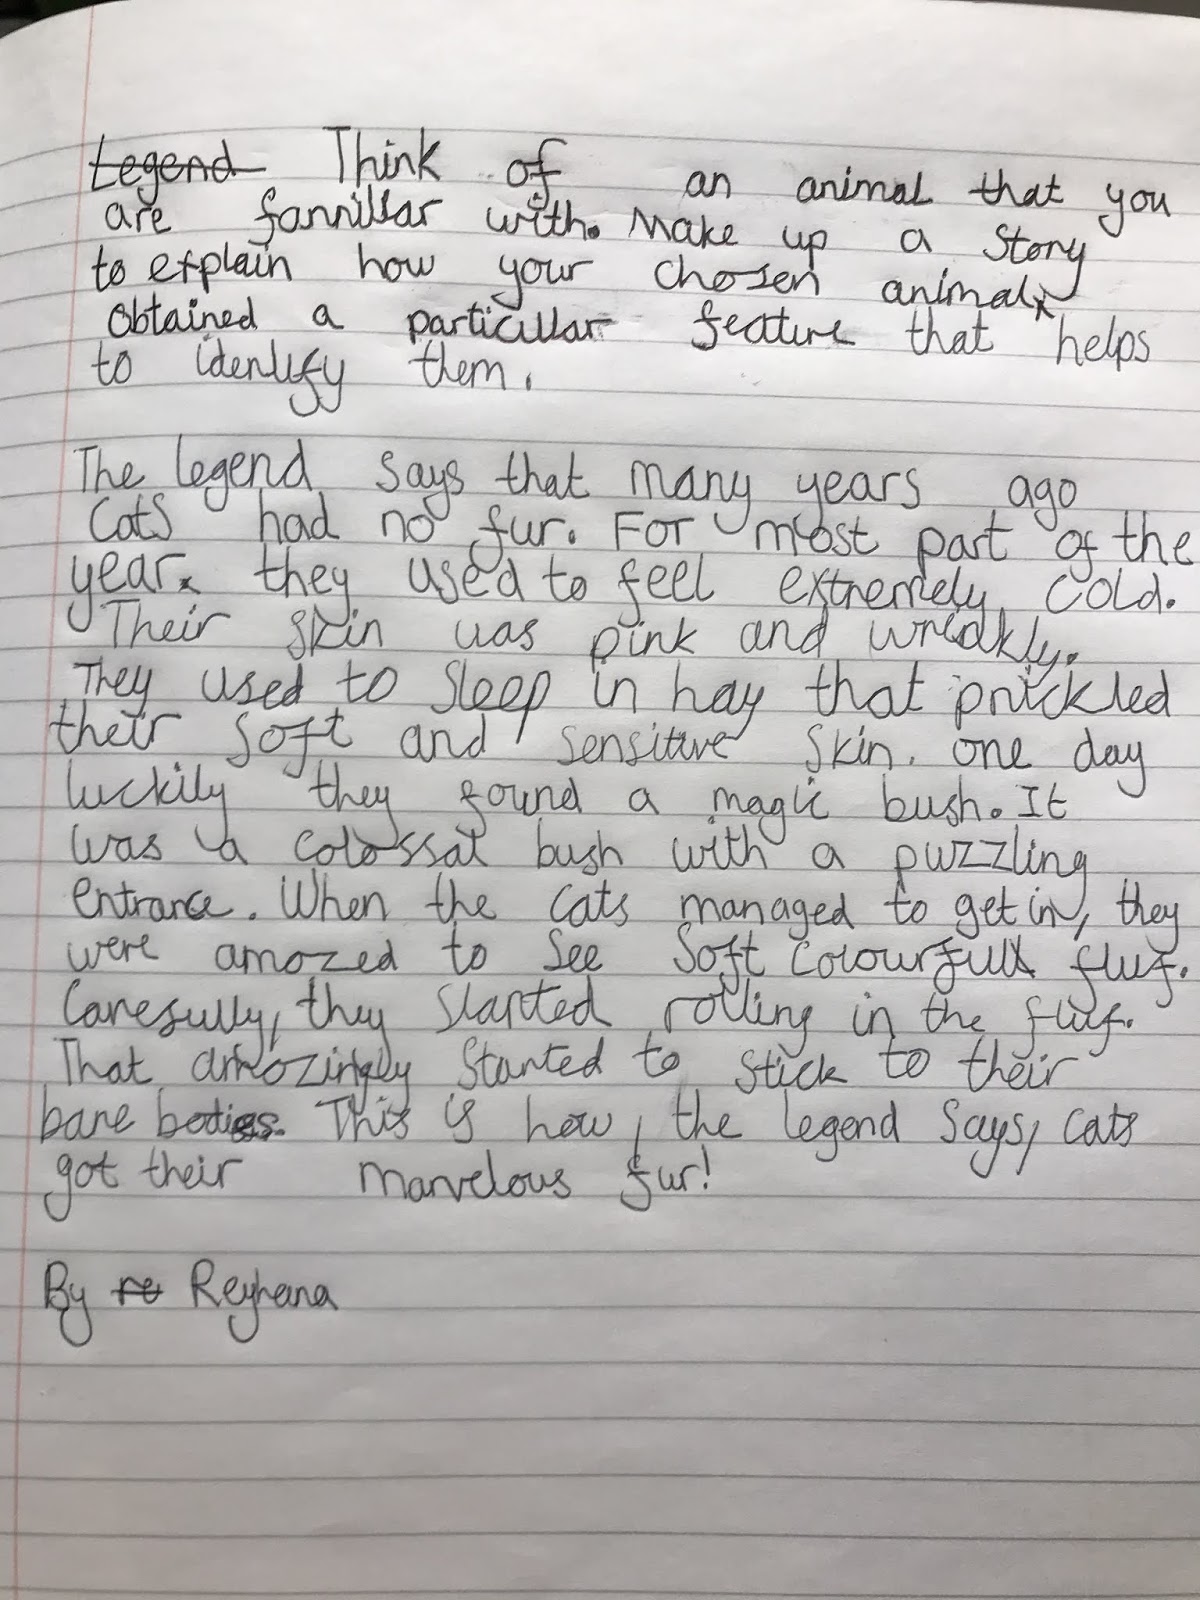 Legend Think of an animal that you
are fannillar with. Make up a story
to explain how your chosen animal
obtained a particular feature that helps
to identify them.
The legend says that many years ago
Cats had no fur. For most part of the
year they used to feel extremely cold.
Their skin was pink and wreakly.
They used to sleep in hay that prickled
their soft and sensitive skin. one day
luckily they found a magic bush. It
was a colossal bush with a puzzling
entrance. When the cats managed to get in, they
were amozed to see soft colourfull fluf.
Carefully, they started rolling in the fluf.
That amozingly started to stick to their
bare bodies. This is how, the legend says, cats
got their marvelous fur!
By re Reyhana